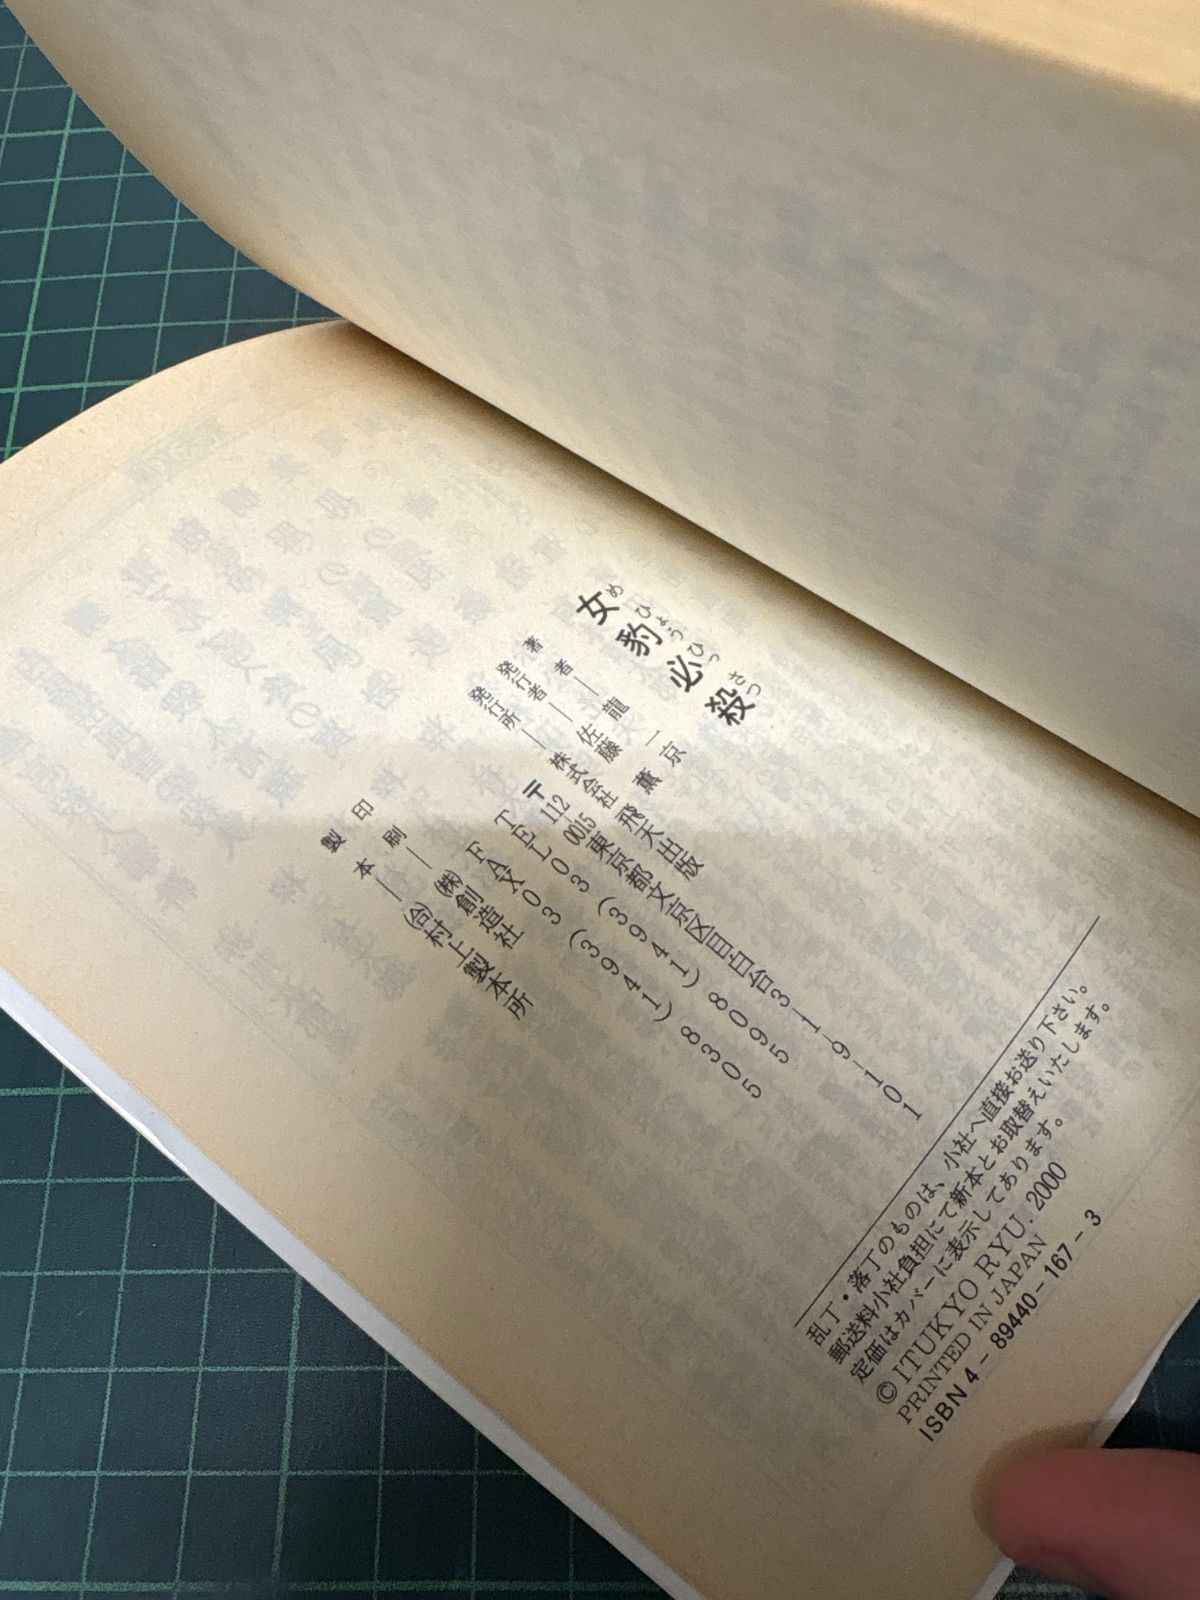 女豹必殺
めひょうひっさつ
著者―龍一京
発行者―佐藤薫
発行所―株式会社飛天出版
〒112-0015東京都文京区目白台3-1-9-101
TEL03(3941)8095
FAX03(3941)8305
印刷―㈱創造社
製本―㈾村上製本所
乱丁・落丁のものは、小社へ直接お送り下さい。
郵送料小社負担にて新本とお取替えいたします。
定価はカバーに表示してあります。
© ITUKYO RYU. 2000
PRINTED IN JAPAN
ISBN 4-89440-167-3